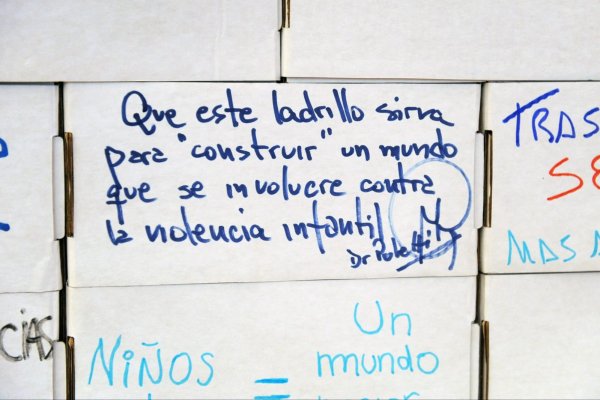 Que este ladrillo sirva
para "construir" un mundo
que se involucre contra
la violencia infantil
Dr
TRAS
SE
MAS A
CIAS
NIÑOS = Un
mundo